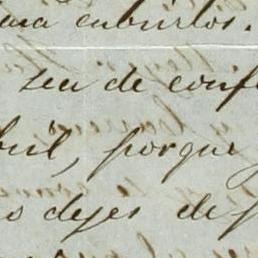 para cubrirlos.
sea de conf
bril, porque
o dejes de